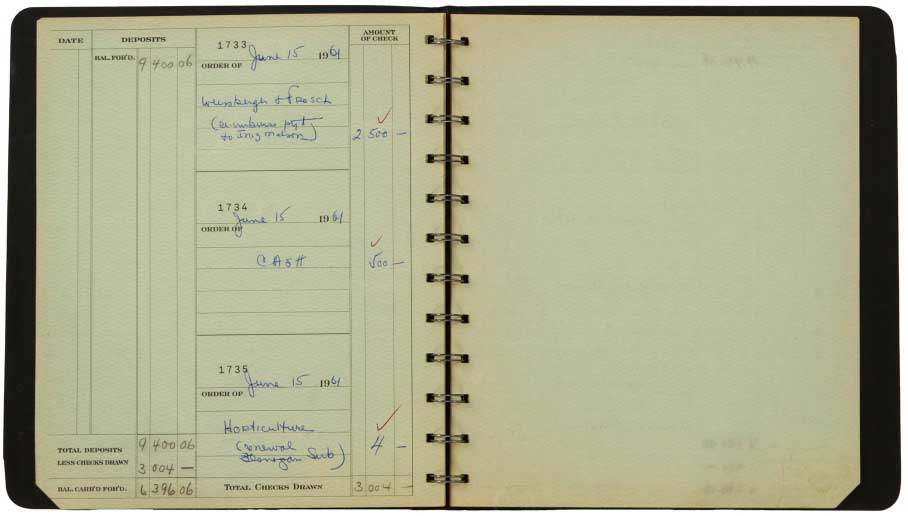 DATE DEPOSITS AMOUNT OF CHECK
BAL. FOR'D. 9 400 06
1733
June 15 1961
ORDER OF
Weissberger & Frosch
(reimburse pyt
to Inez Melson)
2 500 —
1734
June 15 1961
ORDER OF
CASH
500 —
1735
June 15 1961
ORDER OF
Horticulture
(renewal
Sub)
4 —
TOTAL DEPOSITS 9 400 06
LESS CHECKS DRAWN 3 004 —
BAL. CARR'D FOR'D. 6 396 06
TOTAL CHECKS DRAWN 3 004 —